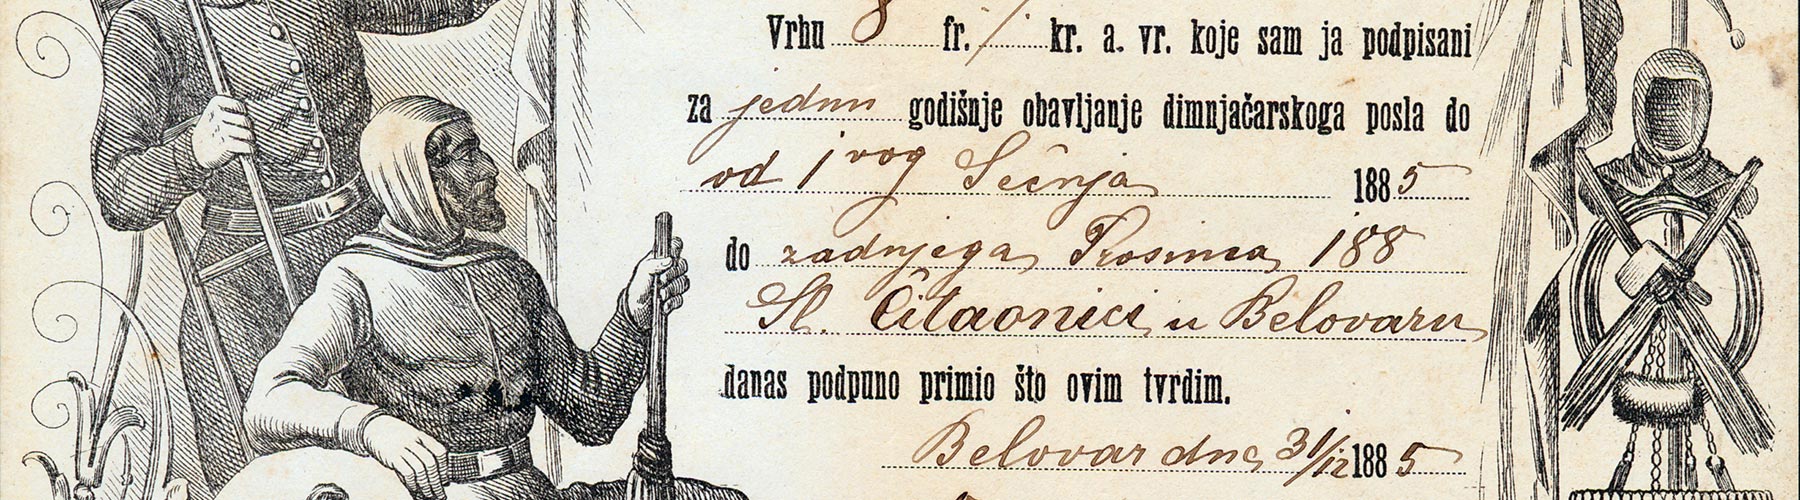 Vrhu 8 fr. / kr. a. vr. koje sam ja podpisani
za jednu godišnje obavljanje dimnjačarskoga posla do
od 1vog Sečnja 1885
do zadnjega Prosinca 188
Sl. Čitaonici u Belovaru
danas podpuno primio što ovim tvrdim.
Belovar dne 31/12 1885